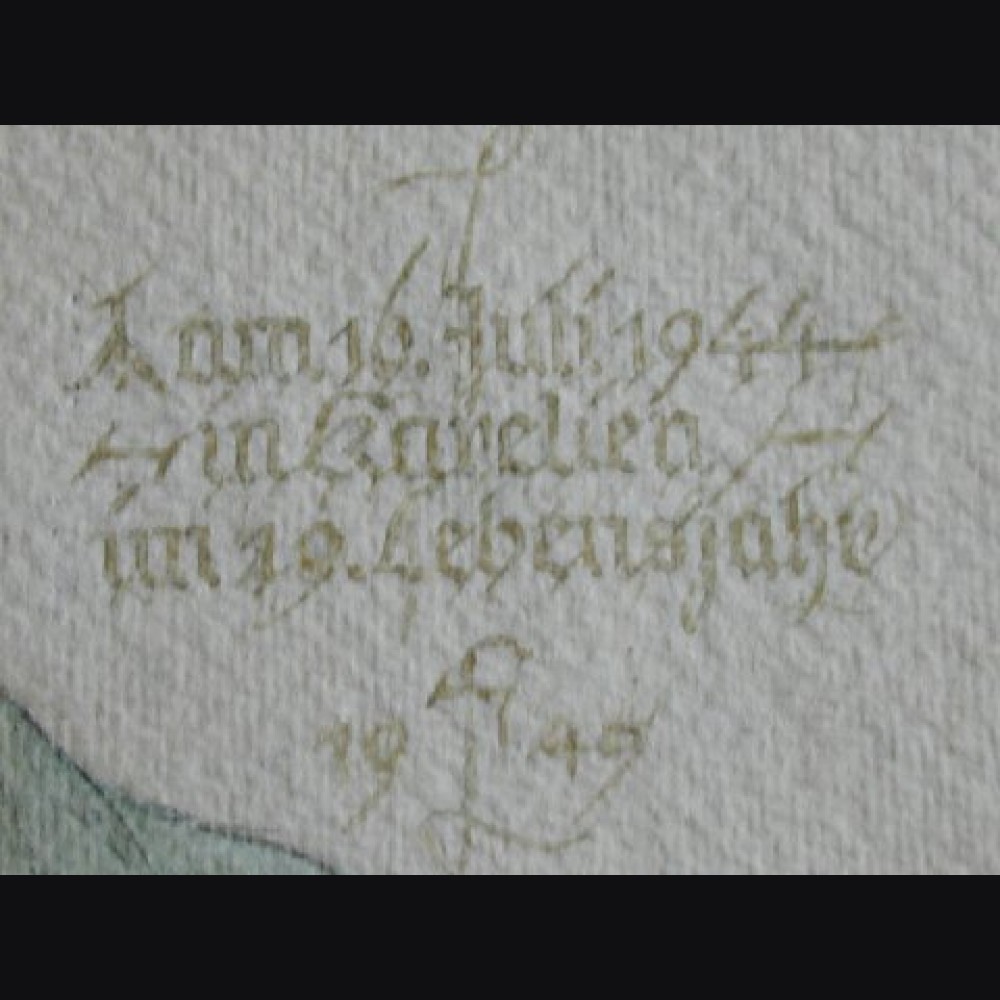 am 16. Juli 1944
in Karelien
im 19. Lebensjahr
19 49